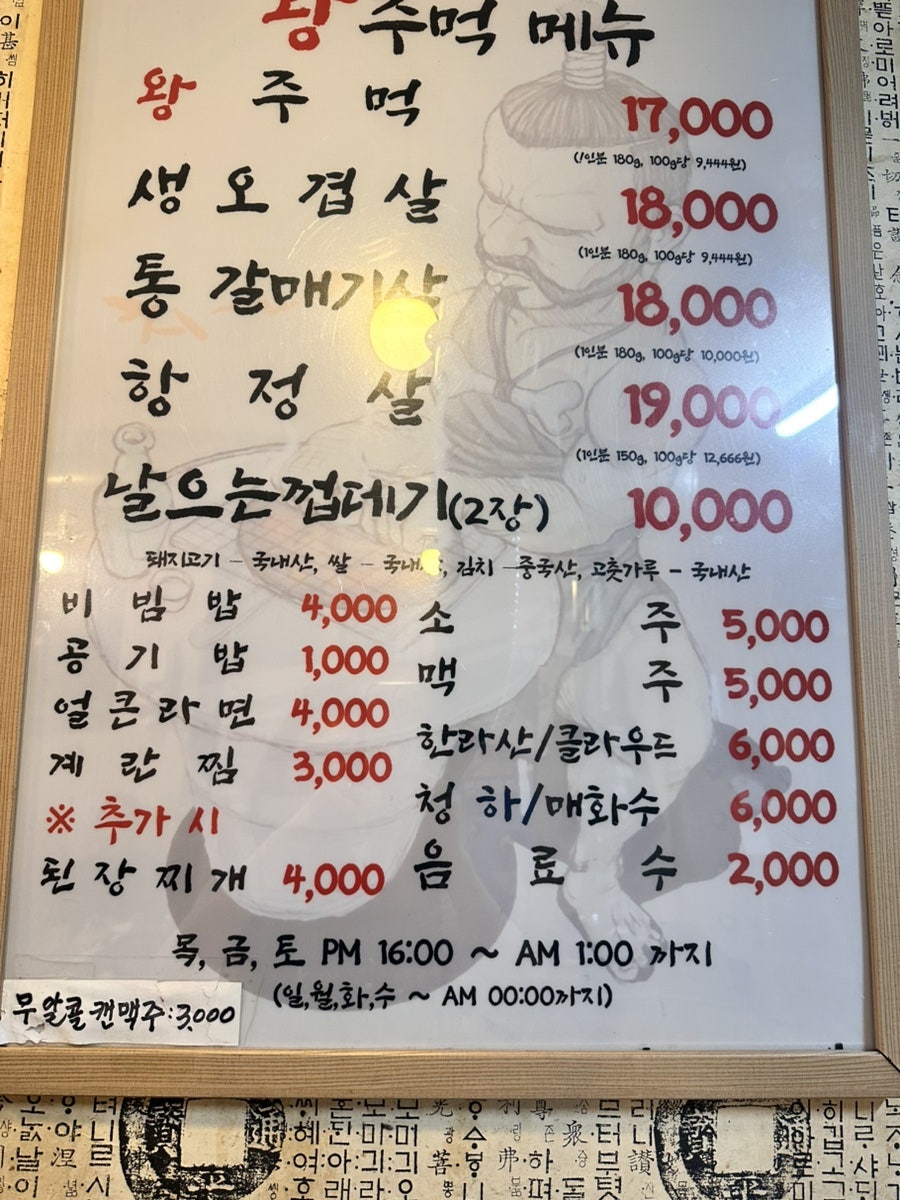 왕주먹 메뉴
왕주먹 17,000
(1인분 180g, 100g당 9,444원)
생오겹살 18,000
(1인분 180g, 100g당 9,444원)
통갈매기살 18,000
(1인분 180g, 100g당 10,000원)
항정살 19,000
(1인분 150g, 100g당 12,666원)
날으는껍데기(2장) 10,000
돼지고기 - 국내산, 쌀 - 국내산, 김치 - 중국산, 고춧가루 - 국내산
비빔밥 4,000
공기밥 1,000
얼큰라면 4,000
계란찜 3,000
※ 추가 시
된장찌개 4,000
소주 5,000
맥주 5,000
한라산/클라우드 6,000
청하/매화수 6,000
음료수 2,000
목, 금, 토 PM 16:00 ~ AM 1:00 까지
(일,월,화,수 ~ AM 00:00까지)
무알콜 캔맥주:3,000